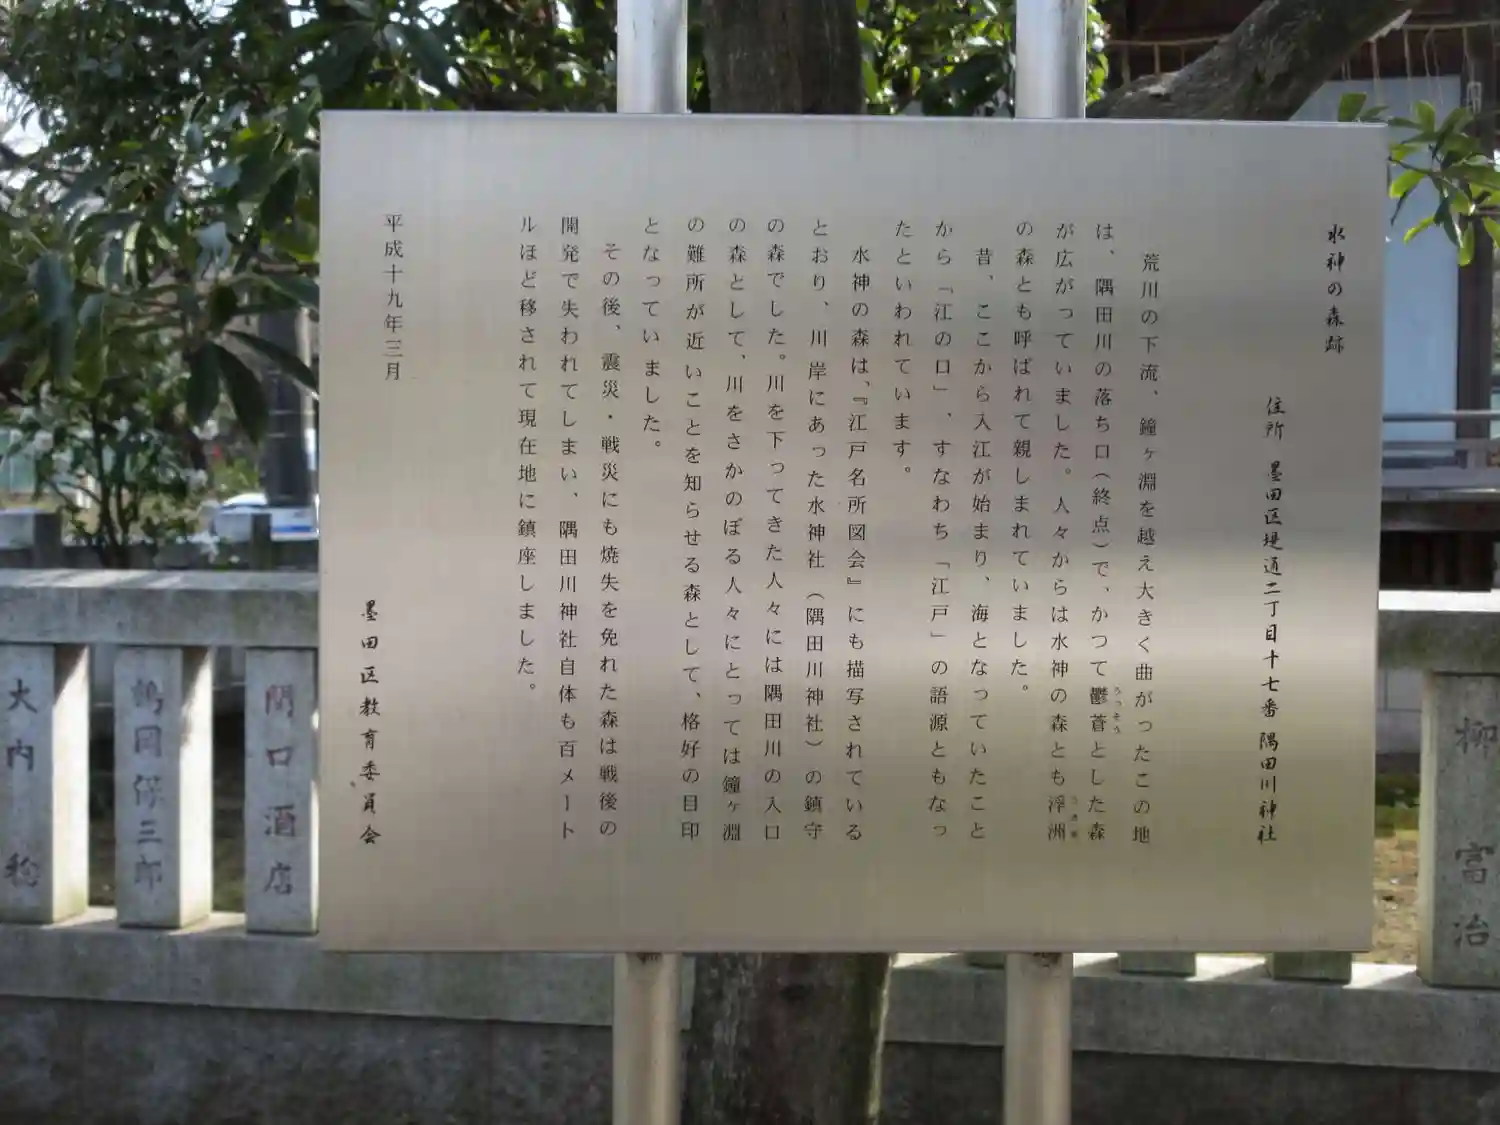 水神の森跡
住所 墨田区堤通二丁目十七番 隅田川神社
荒川の下流、鐘ヶ淵を越え大きく曲がったこの地
は、隅田川の落ち口（終点）で、かつて鬱蒼とした森
うっそう
が広がっていました。人々からは水神の森とも浮洲
の森とも呼ばれて親しまれていました。
昔、ここから入江が始まり、海となっていたこと
から「江の口」、すなわち「江戸」の語源ともなっ
たといわれています。
水神の森は、『江戸名所図会』にも描写されている
とおり、川岸にあった水神社（隅田川神社）の鎮守
の森でした。川を下ってきた人々には隅田川の入口
の森として、川をさかのぼる人々にとっては鐘ヶ淵
の難所が近いことを知らせる森として、格好の目印
となっていました。
その後、震災・戦災にも焼失を免れた森は戦後の
開発で失われてしまい、隅田川神社自体も百メート
ルほど移されて現在地に鎮座しました。
平成十九年三月
墨田区教育委員会
柳 富治
関口酒店
鶴岡保三郎
大内